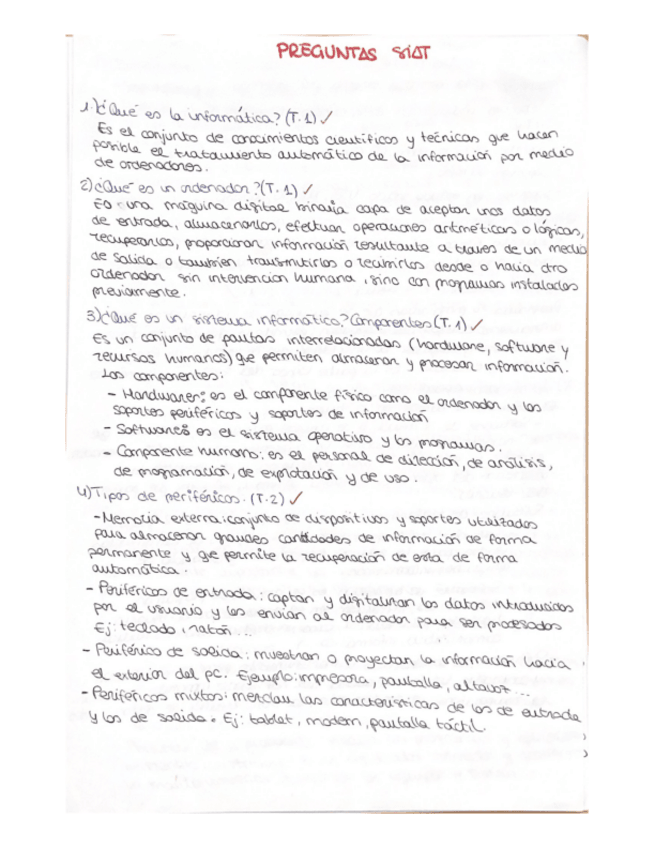 PREGUNTAS SIAT
1.) ¿Qué es la informática? (T.1) ✓
Es el conjunto de conocimientos científicos y técnicas que hacen
posible el tratamiento automático de la información por medio
de ordenadores.
2) ¿Qué es un ordenador? (T.1) ✓
Es una máquina digital binaria capa de aceptar unos datos
de entrada, almacenarlos, efectuar operaciones aritméticas o lógicas,
recuperarlos, proporcionar información resultante a traves de un medio
de salida o tambien transmitirlos o recibirlos desde o hacia otro
ordenador sin intervencion humana, sino con programas instalados
previamente.
3) ¿Qué es un sistema informático? Componentes (T.1) ✓
Es un conjunto de pautas interrelacionadas (hardware, software y
recursos humanos) que permiten almacenar y procesar información.
Los componentes:
- Hardware: es el componente físico como el ordenador y los
soportes periféricos y soportes de información
- Software: es el sistema operativo y los programas.
- Componente humano: es el personal de dirección, de análisis,
de programación, de explotación y de uso.
4) Tipos de periféricos. (T.2) ✓
- Memoria externa: conjunto de dispositivos y soportes utilizados
para almacenar grandes cantidades de información de forma
permanente y que permite la recuperación de esta de forma
automática.
- Periféricos de entrada: captan y digitalizan los datos introducidos
por el usuario y los envían al ordenador para ser procesados
Ej: teclado, ratón...
- Periférico de salida: muestran o proyectan la información hacia
el exterior del pc. Ejemplo: impresora, pantalla, altavoz...
- Periféricos mixtos: mezclan las características de los de entrada
y los de salida. Ej: tablet, modem, pantalla táctil.